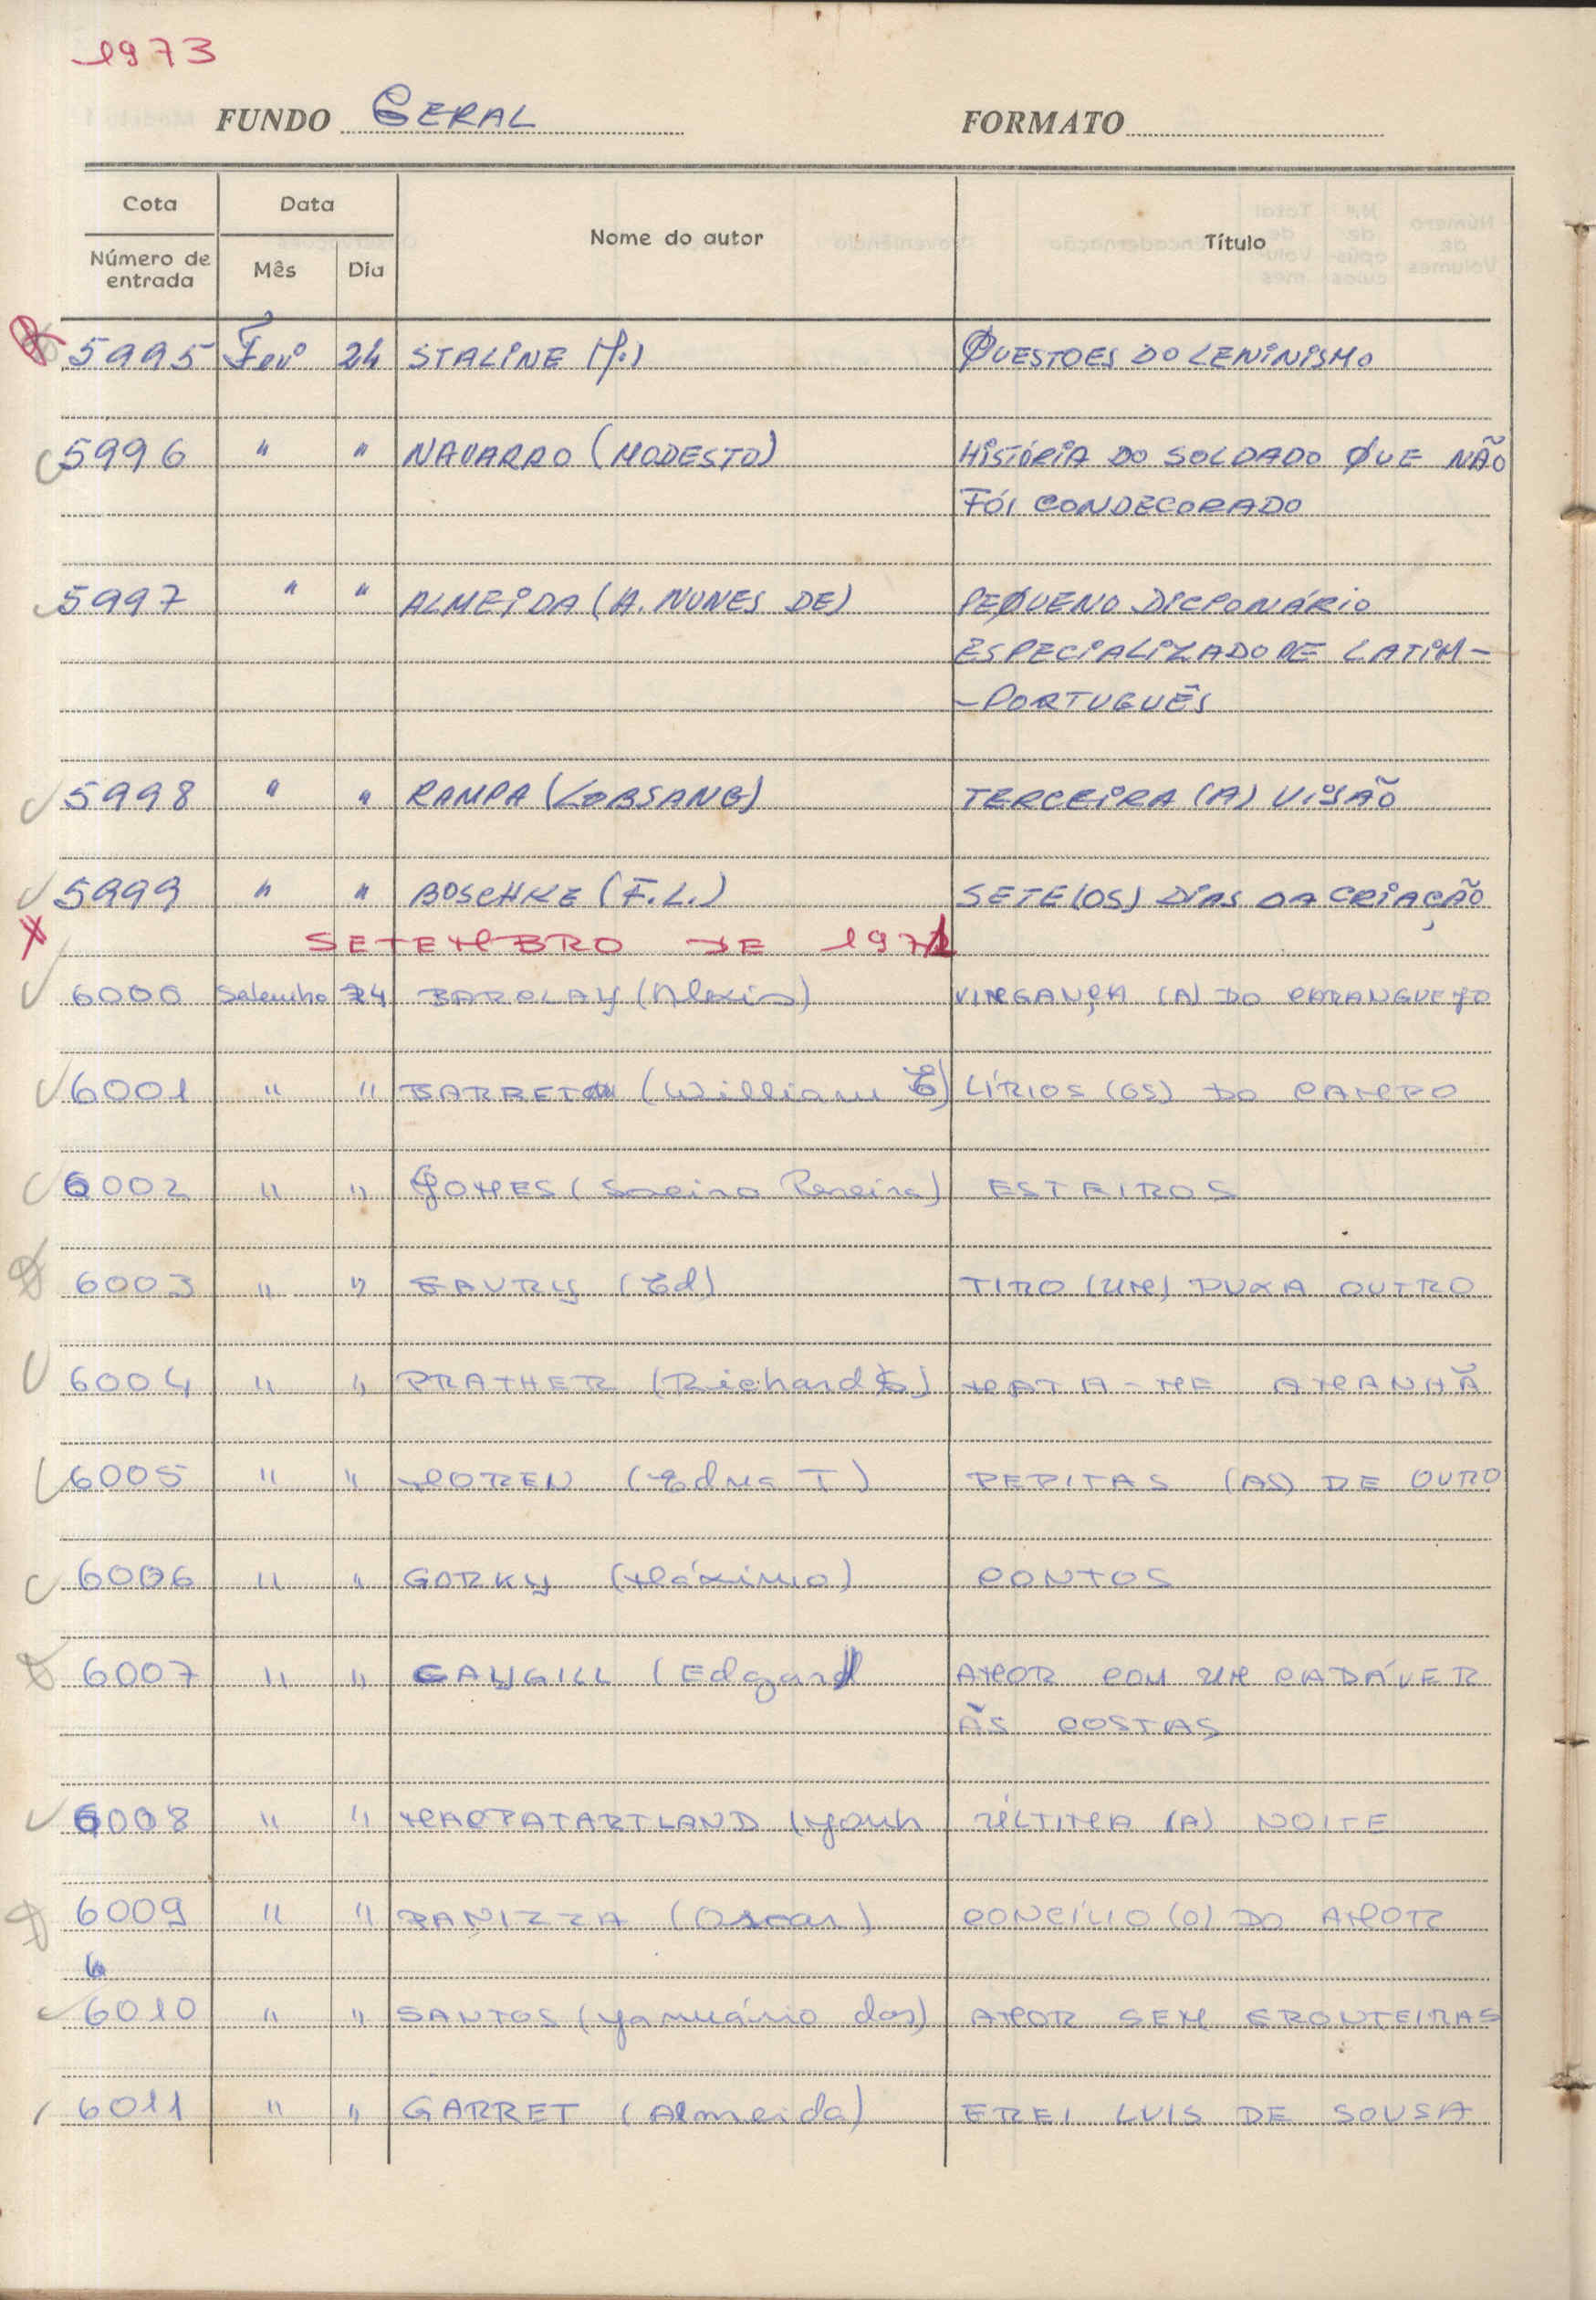 1973
FUNDO GERAL FORMATO
Cota Data Nome do autor Título
Número de entrada Mês Dia
5995 Fevº 24 STALINE (J.) QUESTOES DO LENINISMO
5996 " " NAVARRO (MODESTO) HISTÓRIA DO SOLDADO QUE NÃO
FÓI CONDECORADO
5997 " " ALMEIDA (A. NUNES DE) PEQUENO DICIONÁRIO
ESPECIALIZADO DE LATIM-
-PORTUGUÊS
5998 " " RAMPA (LOBSANG) TERCEIRA (A) VISÃO
5999 " " BOSCHKE (F.L.) SETE (OS) DIAS DA CRIAÇÃO
SETEMBRO DE
6000 Setembro 24 BARCLAY (Alexis) VINGANÇA (A) DO CARANGUEJO
6001 " " (William E) LÍRIOS (OS) DO CAMPO
6002 " " GOMES (Soeiro Pereira) ESTEIROS
6003 " " FAURY (Ed) TIRO (UM) PUXA OUTRO
6004 " " PRATHER (Richard S) MATA-ME AMANHÃ
6005 " " (Edna T) PEPITAS (AS) DE OURO
6006 " " GORKY (Máximo) CONTOS
6007 " " CAYGILL (Edgard AMOR COM UM CADÁVER
ÀS COSTAS
6008 " " ÚLTIMA (A) NOITE
6009 " " PANIZZA (Oscar) CONCÍLIO (O) DO AMOR
6
6010 " " SANTOS (Januário dos) AMOR SEM FRONTEIRAS
6011 " " GARRET (Almeida) FREI LUIS DE SOUSA